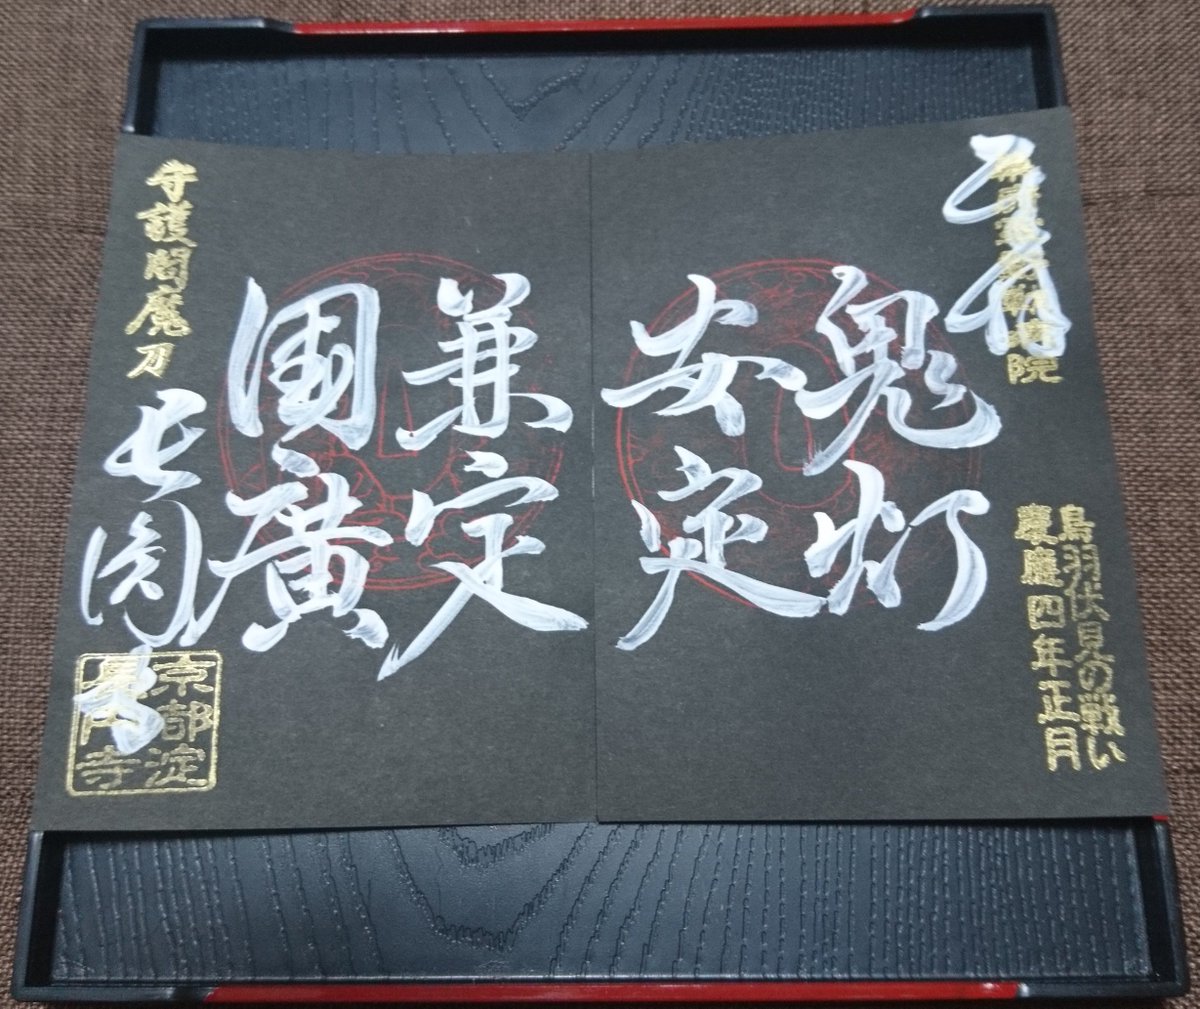 院
鳥羽伏見の戦い
慶應四年正月
鬼灯
安定
兼定
国廣
守護閻魔刀
長圓寺
京都淀
長円寺